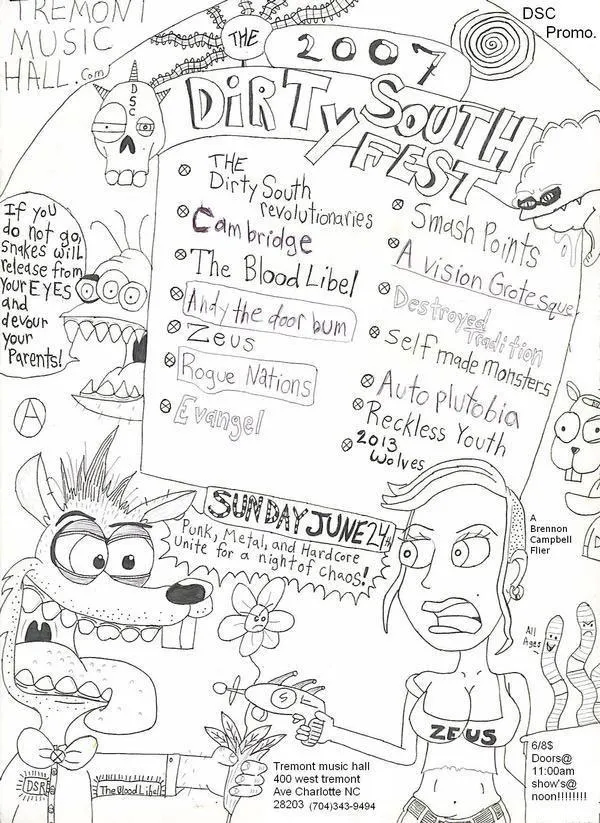 TREMONT
MUSIC
HALL.com
DSC
Promo.
THE
2007
DiRTy SOUTH
FEST
DSC
THE
Dirty South
revolutionaries
Cambridge
The Blood Libel
Andy the door bum
Zeus
Rogue Nations
Evangel
Smash Points
A vision Grotesque
Destroyed
Tradition
self made monsters
Auto plutobia
Reckless Youth
2013
Wolves
If you
do not go,
snakes will
release from
your EYES
and
devour
your
Parents!
A
SUNDAY JUNE 24th
Punk, Metal, and Hardcore
Unite for a night of chaos!
A
Brennon
Campbell
Flier
All
Ages
ZEUS
DSR
The Blood Libel
Tremont music hall
400 west tremont
Ave Charlotte NC
28203 (704)343-9494
6/8$
Doors@
11:00am
show's@
noon!!!!!!!!